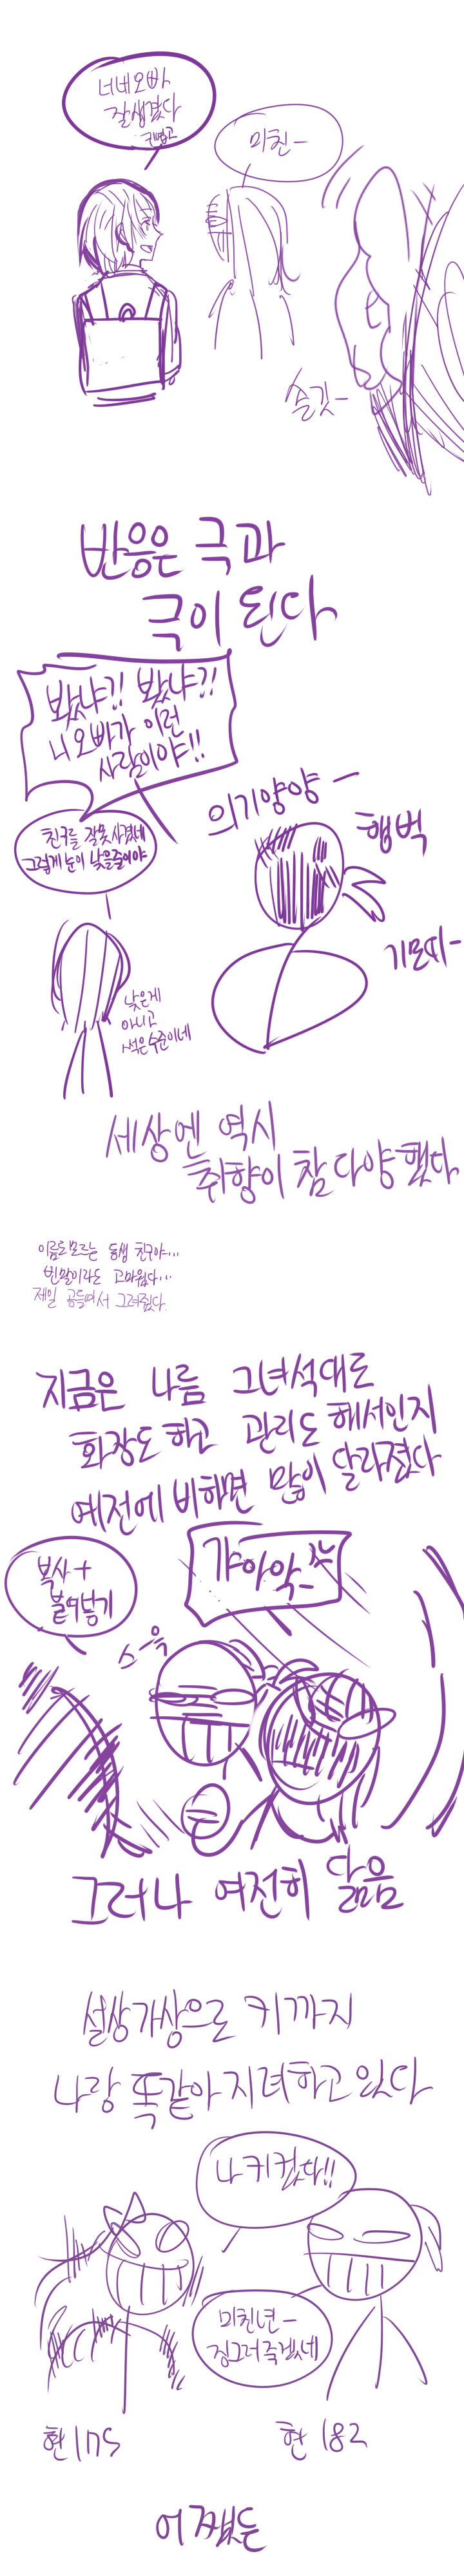 너네오빠
잘생겼다
귀엽고
미친-
슬깃-
반응은 극과
극이 된다
봤냐?! 봤냐?!
니 오빠가 이런
사람이야!!
친구를 잘못 사겼네
그렇게 눈이 낮을줄이야
의기양양-
햄벅
기모띠-
낮은게
아니고
썩은수준이네
세상엔 역시
취향이 참 다양했다
이름도모르는 동생 친구야...
빈말이라도 고마웠다...
제일 공들여서 그려줬다.
지금은 나름 그녀석대로
화장도 하고 관리도 해서인지
예전에 비하면 많이 달라졌다
복사+
붙여넣기
갸아악-
스윽
그러나 여전히 닮음
설상가상으로 키까지
나랑 똑같아지려하고있다
나 키컸다!!
미친년-
징그러죽겠네
현175
현182
어쨌든